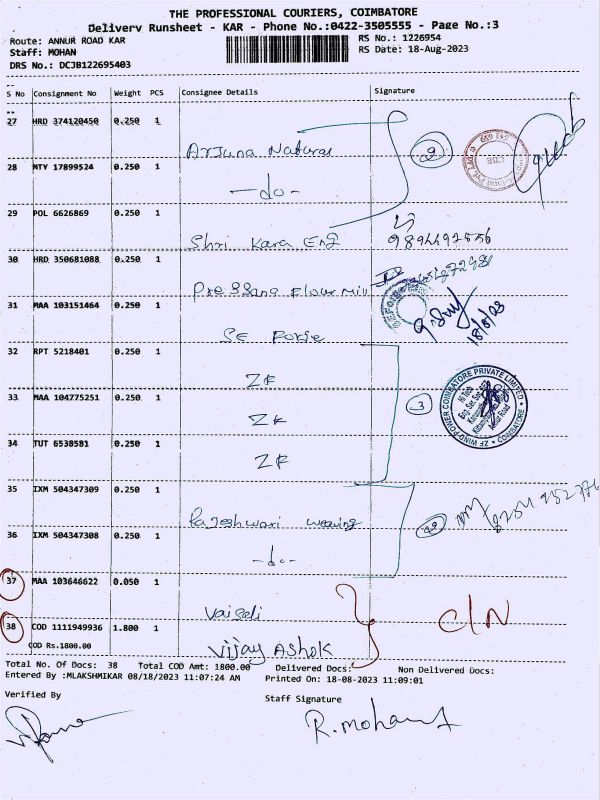 THE PROFESSIONAL COURIERS, COIMBATORE
Delivery Runsheet - KAR - Phone No.:0422-3505555 - Page No.:3
Route: ANNUR ROAD KAR
RS No.: 1226954
Staff: MOHAN
RS Date: 18-Aug-2023
DRS No.: DCJB122695403
S No Consignment No Weight PCS Consignee Details Signature
27 HRD 374120450 0.250 1
Arjuna Natural
28 MTY 17899524 0.250 1
-do-
29 POL 6626869 0.250 1
Shri Kara Eng
30 HRD 350681088 0.250 1
Flour Mill
31 MAA 103151464 0.250 1
18/8/23
32 RPT 5218401 0.250 1
ZF
33 MAA 104775251 0.250 1
ZF
3
ZF WIND POWER COIMBATORE PRIVATE LIMITED
COIMBATORE
34 TUT 6538581 0.250 1
ZF
35 IXM 504347309 0.250 1
Rajeshwari weaving
36 IXM 504347308 0.250 1
-do-
37 MAA 103646622 0.050 1
38 COD 1111949936 1.800 1
C/N
COD Rs.1800.00
Vijay Ashok
Total No. Of Docs: 38 Total COD Amt: 1800.00 Delivered Docs: Non Delivered Docs:
Entered By :MLAKSHMIKAR 08/18/2023 11:07:24 AM Printed On: 18-08-2023 11:09:01
Verified By
Staff Signature
R. Mohan